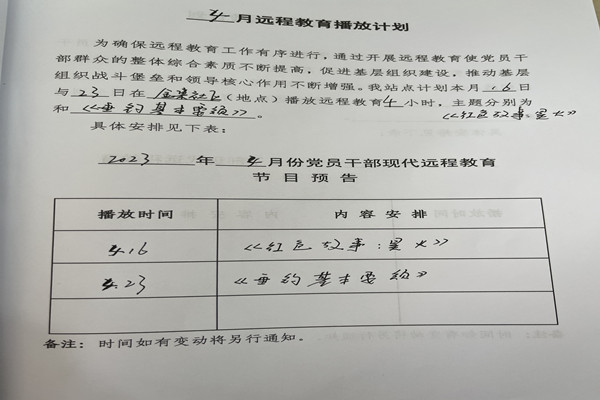 4月远程教育播放计划
为确保远程教育工作有序进行，通过开展远程教育使党员干
部群众的整体综合素质不断提高，促进基层组织建设，推动基层
组织战斗堡垒和领导核心作用不断增强。我站点计划本月 16 日
与 23 日在 社区（地点）播放远程教育 4 小时，主题分别为
《红色故事：星火》
和《垂钓基本要领》。
具体安排见下表：
2023 年 4 月份党员干部现代远程教育
节目预告
播放时间 内容安排
4.16 《红色故事：星火》
4.23 《垂钓基本要领》
备注：时间如有变动将另行通知。